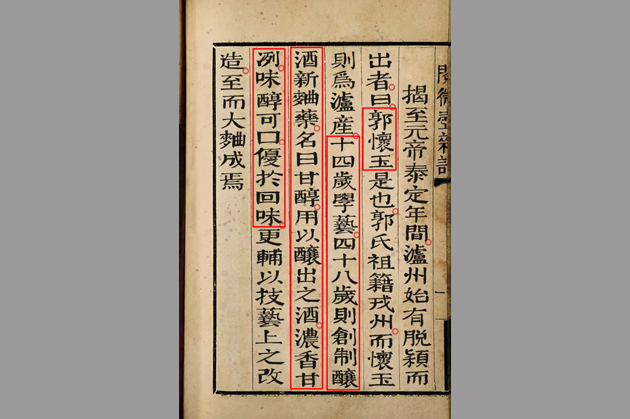 閱微堂新記
揭至元帝泰定年間瀘州始有脫穎而
出者曰郭懷玉是也郭氏祖籍戎州而懷玉
則為瀘産十四歲學藝四十八歲則創制釀
酒新麯藥名曰甘醇用以釀出之酒濃香甘
冽味醇可口優於回味更輔以技藝上之改
造至而大麯成焉